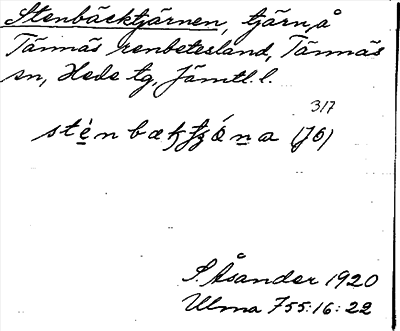 Stenbäcktjärnen, tjärn, å
Tännäs renbetesland, Tännäs
sn, Hede tg, Jämtl. l.
317
(JÖ)
S. Åsander 1920
Ulma 755:16:22